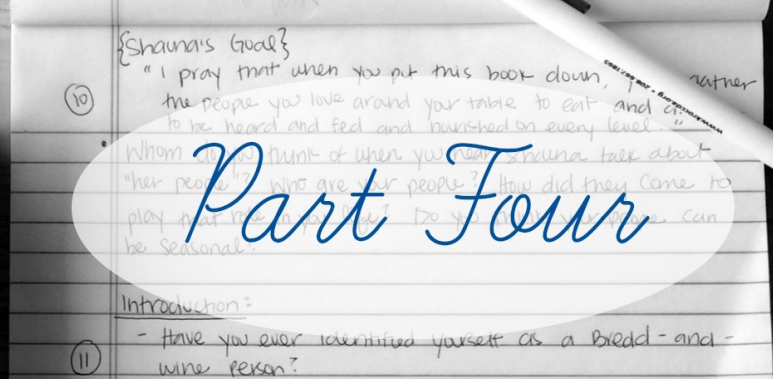 {Shauna's Goal}
10 "I pray that when you put this book down, gather
the people you love around your table to eat and
to be heard and fed and nourished on every level."
Whom do you think of when you hear Shauna talk about
"her people"? Who are your people? How did they come to
play that role in your life? Do you can
be seasonal?
Part Four
Introduction:
- Have you ever identified yourself as a Bread-and-
11 wine person?